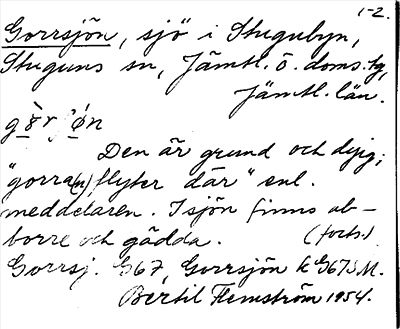 1-2.
Gorrsjön, sjö i Stugubyn,
Stuguns sn, Jämtl. ö. doms.,
Jämtl. län.
Den är grund och dyig;
"gorra(n) flyter där" enl.
meddelaren. I sjön finns ab-
borre och gädda. (forts.)
Gorrsj. G67, Gorrsjön k G67SM.
Bertil Flemström 1954.